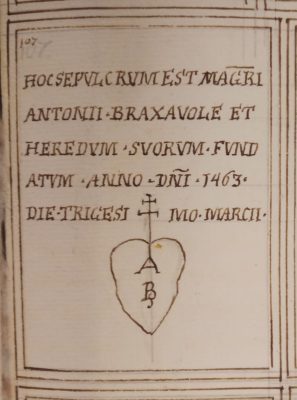 107
HOC SEPULCRUM EST MAG̅R̅I
ANTONII · BRAXAVOLE ET
HEREDVM · SVORVM · FVND
ATVM · ANNO · DN̅I · 1463 ·
DIE · TRIGESI MO · MARCII ·
A
B